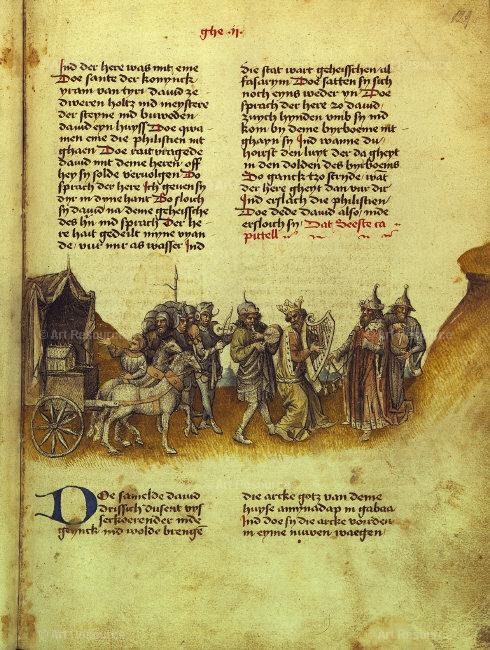 ghe · ij ·
129
Ind der here was mit eme
Doe sante der konynck
yram van tyri david ze
dweren holtz ind meystere
der steyne ind buweden
david eyn huyss Doe qwa
men eme die philistien int
ghaen Doe rait vragede
david mit deme heren off
hey sy solde vervolgen Do
sprach der here Ich geven sy
dyr in dyne hant Do sloich
sy david na deme geheissche
des hn ind sprach Der he
re hait gedeilt myne vyan
de vur mir as wasser Ind
die stat wart geheisschen al
farasym Doe satten sy sich
noch eyns weder yn Doe
sprach der here zo david
zuych hynden umb sy ind
kom by deme byrboeme int
ghayn sy Ind wanne du
hoirst den luyt der da gheyt
in den dolden des byrboems
So ganck tzo stryde wat
der here gheyt dan vur dir
Ind erslach die philistien
Doe dede david also inde
ersloich sy Dat Seeste ca
pittell
Doe samelde david
drissich dusent uys
serkoerender inde
geynck ind wolde brengē
die arcke gotz van deme
huyse amynadap in gabaa
Ind doe sy die arcke voirden
in eyme nuwen waegen
© Art Resource